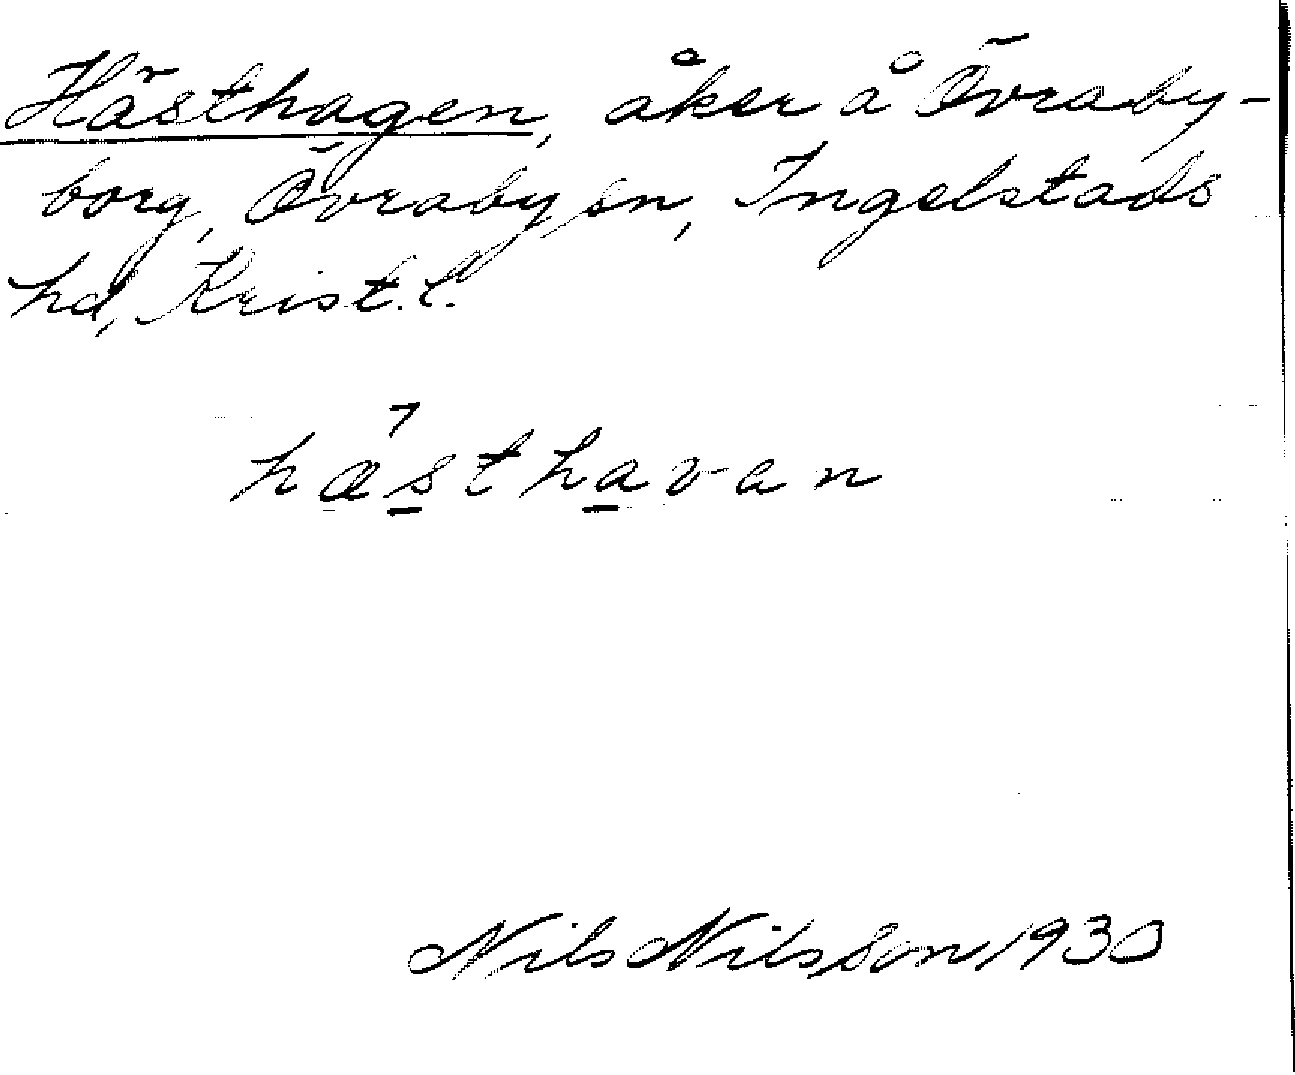 Hästhagen, åker å Övraby-
borg, Övraby sn, Ingelstads
hd, Krist. l.
hæsthavan
Nils Nilsson, 1930